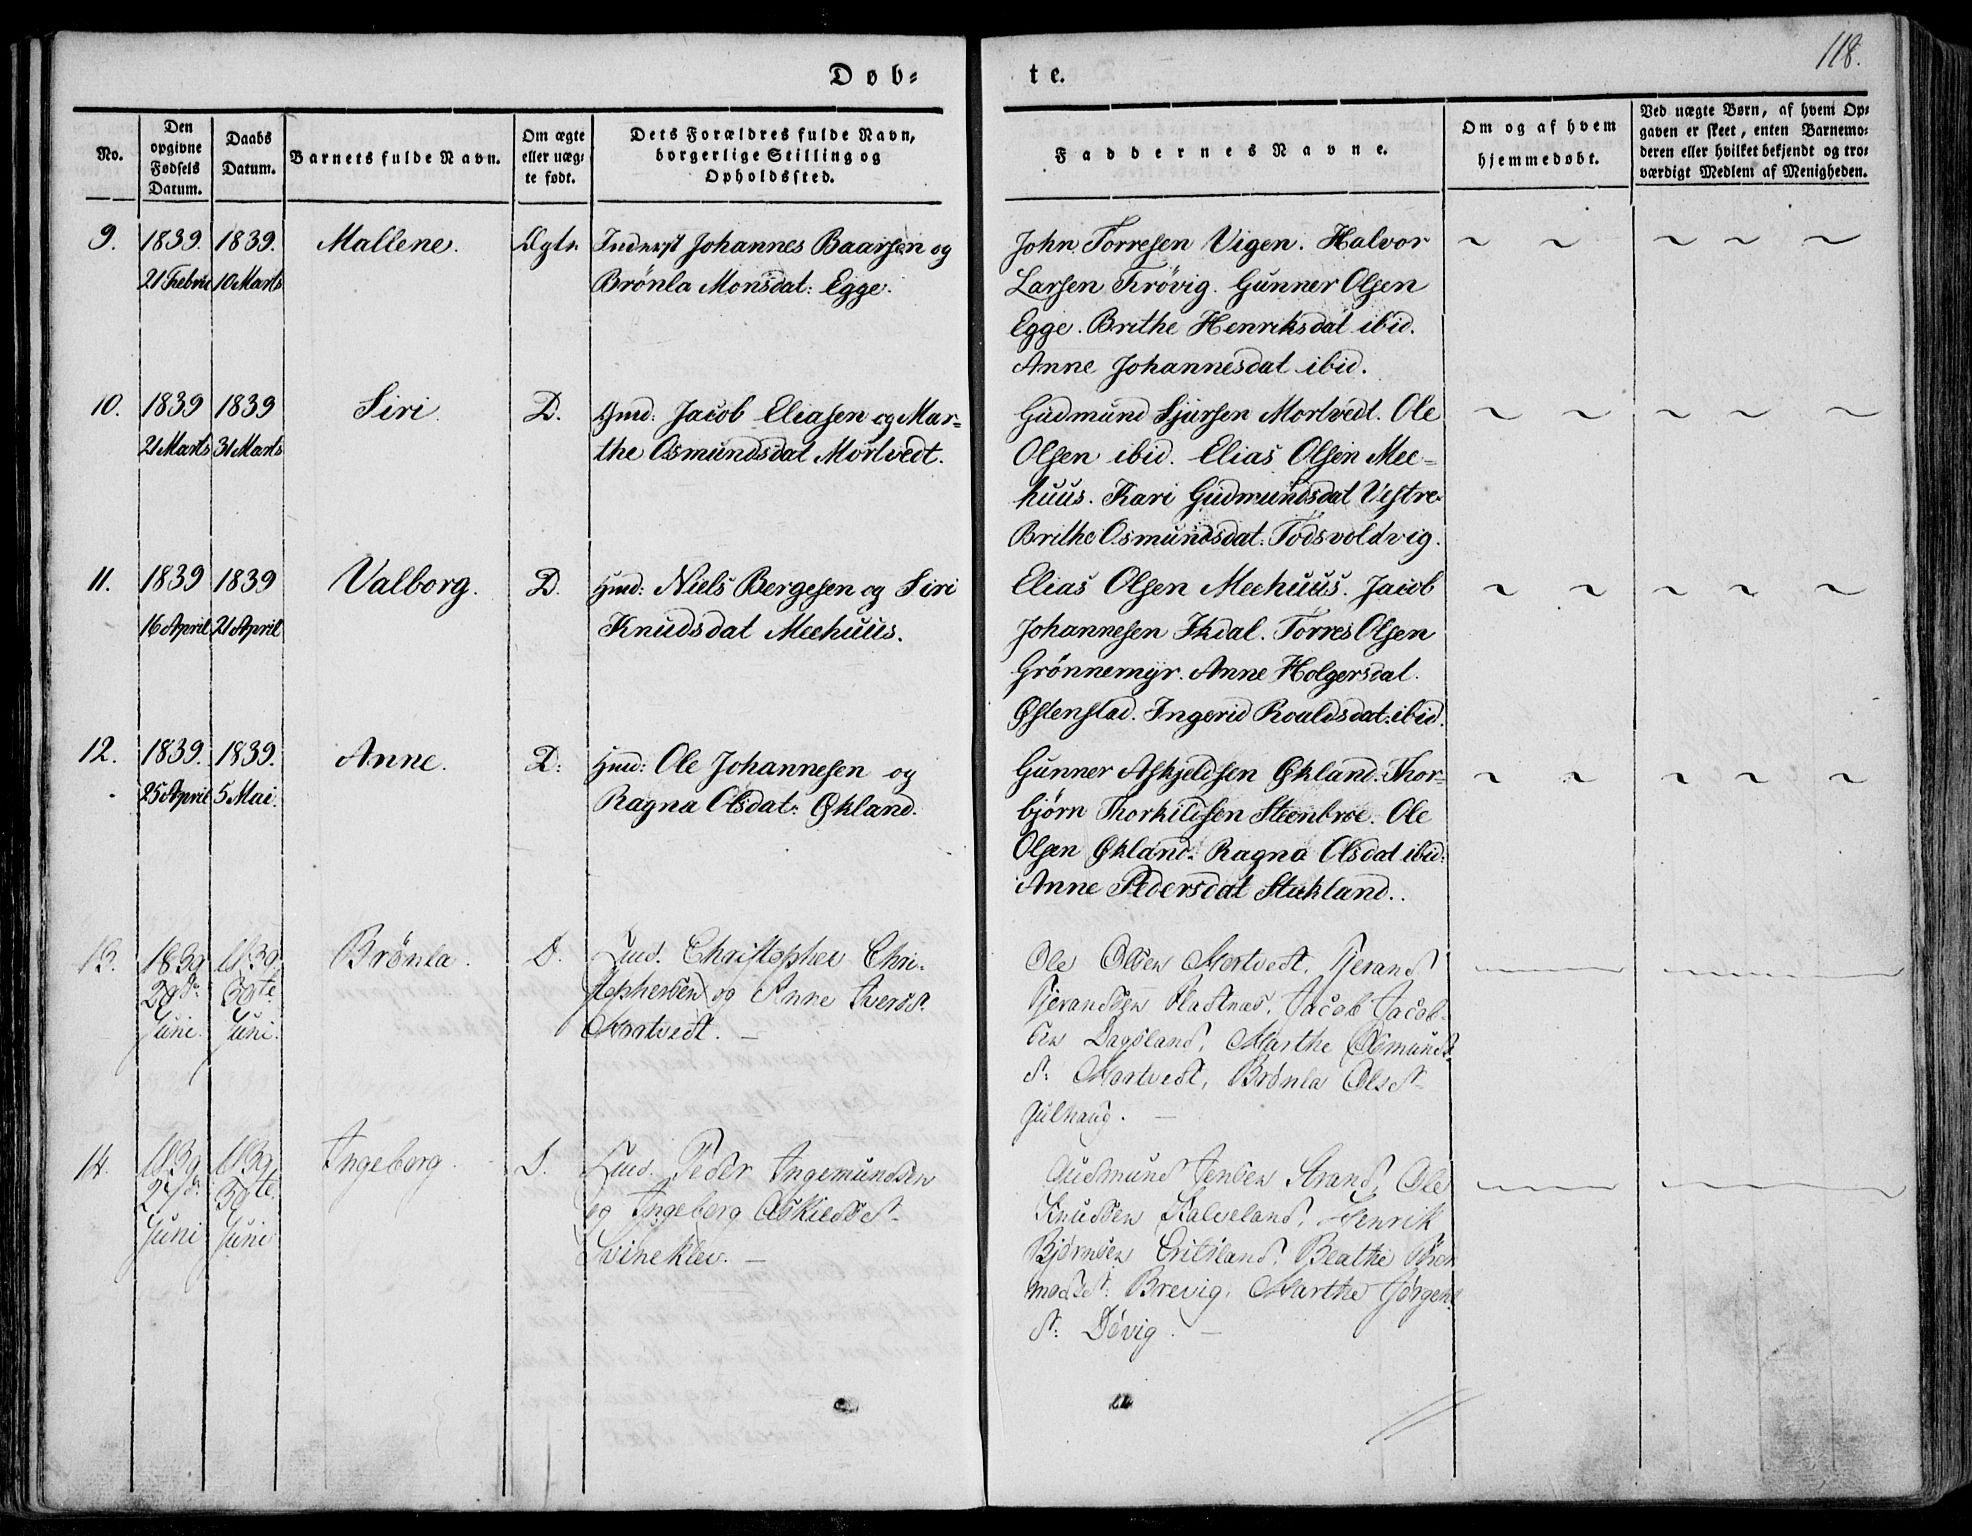 118.
Døb-
te.
No.
Den opgivne Fødsels Datum.
Daabs Datum.
Barnets fulde Navn.
Om ægte eller uæg-te født.
Dets Forældres fulde Navn, borgerlige Stilling og Opholdssted.
Faddernes Navne.
Om og af hvem hjemmedøbt.
Ved uægte Børn, af hvem Op-gaven er skeet, enten Barnemo-deren eller hvilket bekjendt og tro-værdigt Medlem af Menigheden.
9. 1839. 1839. Mallene. Ægte Inderst Johannes Baarsen og
21 Febru 10 Marts Brönla Monsdat: Egge.
John Torresen Vigen. Halvor
Larsen Frövig. Gunner Olsen
Egge. Brithe Henriksdat ibid.
Anne Johannesdat ibid.
10. 1839 1839 Siri. D. Gmd: Jacob Eliasen og Mar-
21 Marts 31 Marts the Osmundsdat Mortvedt.
Gudmund Sjursen Mortvedt. Ole
Olsen ibid. Elias Olsen Mee-
huus. Kari Gudmundsdat Vestre
Brithe Osmundsdat. Todsvoldvig.
11. 1839 1839 Valborg. D. Hmd: Niels Bergesen og Siri
16 April 21 April Knudsdat Meehuus.
Elias Olsen Meehuus. Jacob
Johannesen Ikdal. Torres Olsen
Grönnemyr. Anne Holgersdat.
Østenstad. Ingerid Roaldsdat. ibid.
12. 1839. 1839. Anne. D: Hmd: Ole Johannesen og
25 April 5 Mai. Ragna Olsdat: Økland.
Gunner Askjeldsen Økland. Thor-
bjørn Thorkildsen Steenbroe. Ole
Olsen Økland. Ragna Olsdat ibid:
Anne Pedersdat Stukland.
13. 1839 1839 Brönla. D. Christopher Chri-
Juni. 30te Juni. stophersen og Anne Iversd.
Mortvedt. —
Ole Olsen Mortvedt, Tjerand
Tjerandsen Hadtnes, Jacob Jacob-
sen Dagsland, Marthe Osmunds
d: Mortvedt, Brønla Olsd.
Gulhaug. —
14. 1839 1839 Ingeborg. D. Peder Ingemundsen
Juni 30te Juni og Ingeborg Askieldsd.
Svineklev. —
Gudmund Jensen Strand, Ole
Knudsen Kalveland, Henrik
Bjørnsen Eritsland, Beathe Thor
modsd: Brevig, Marthe Jørgens
d: Døvig. —